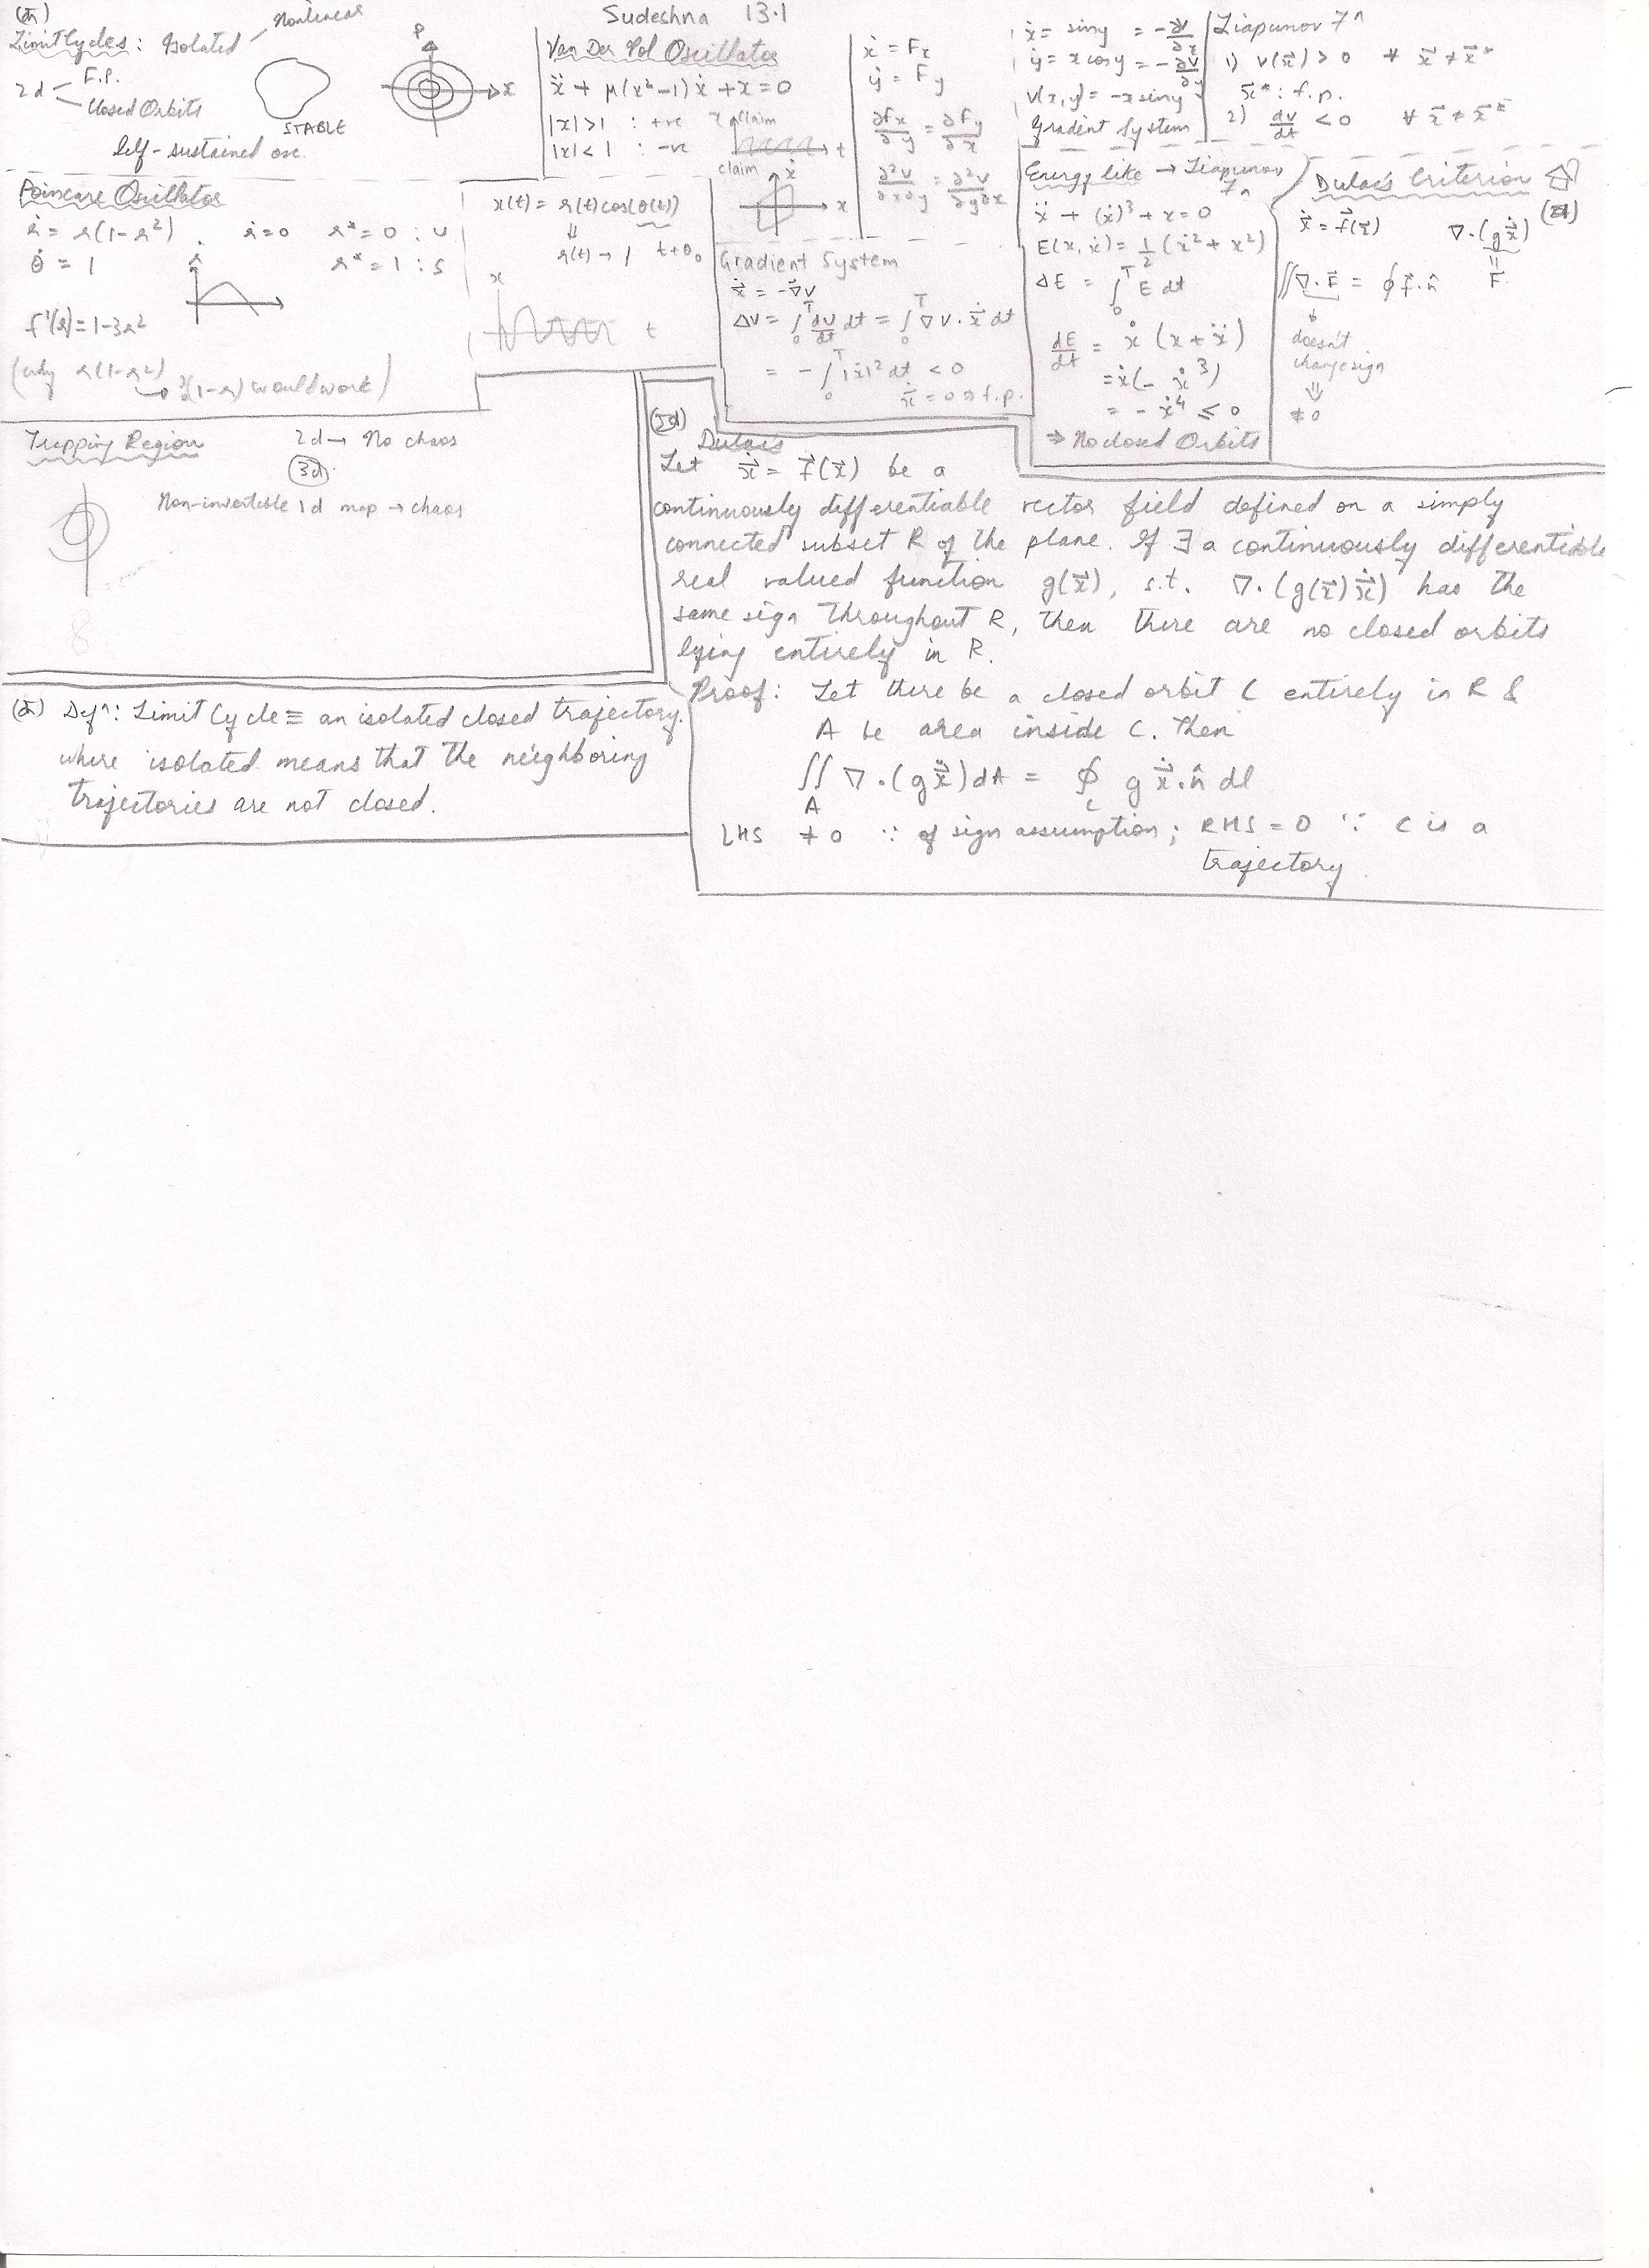 Sudeshna 13.1
Limit Cycles: Isolated
Nonlinear
2d
F.P.
Closed Orbits
STABLE
P
x
Self-sustained osc.
Van Der Pol Oscillator
ẍ + μ(x²-1)ẋ + x = 0
|x|>1 : +ve
|x|<1 : -ve
x claim
t
claim
ẋ
x
ẋ = Fx
ẏ = Fy
∂Fx/∂y = ∂Fy/∂x
∂²V/∂x∂y = ∂²V/∂y∂x
ẋ = sin y = -∂V/∂x
ẏ = x cos y = -∂V/∂y
V(x,y) = -x sin y
Gradient System
Liapunov 7^
1) V(x⃗) > 0 ∀ x⃗ ≠ x⃗*
x⃗* : f.p.
2) dV/dt < 0 ∀ x⃗ ≠ x⃗*
Poincare Oscillator
ṙ = r(1-r²) ṙ=0 r*=0 : U
θ̇ = 1 r*=1 : S
ṙ
f'(r)=1-3r²
(why r(1-r²)
r(1-r) would work)
x(t) = r(t)cos(θ(t))
⇓
r(t) → 1 t+θ₀
x
t
Gradient System
ẋ⃗ = -∇⃗V
ΔV = ∫₀ᵀ dV/dt dt = ∫₀ᵀ ∇V·ẋ⃗ dt
= -∫₀ᵀ |ẋ|² dt < 0
ẋ⃗ = 0 ⇒ f.p.
Energy like → Liapunov
7^
ẍ + (ẋ)³ + x = 0
E(x,ẋ) = ½(ẋ² + x²)
ΔE = ∫₀ᵀ Ė dt
dE/dt = ẋ (x + ẍ)
= ẋ(-ẋ³)
= -ẋ⁴ ≤ 0
⇒ No closed Orbits
Dulac's Criterion
ẋ⃗ = f⃗(x⃗) ∇·(gẋ⃗)
∬∇·F⃗ = ∮F⃗·n̂ F
doesn't
change sign
⇓
≠0
Trapping Region 2d → No chaos
3d
Non-invertible 1d map → chaos
Dulac's
Let ẋ⃗ = f⃗(x⃗) be a
continuously differentiable vector field defined on a simply
connected subset R of the plane. If ∃ a continuously differentiable
real valued function g(x⃗), s.t. ∇·(g(x⃗)ẋ⃗) has the
same sign throughout R, then there are no closed orbits
lying entirely in R.
Proof: Let there be a closed orbit C entirely in R &
A be area inside C. Then
∬_A ∇·(gẋ⃗)dA = ∮_C gẋ⃗·n̂ dl
LHS ≠ 0 ∵ of sign assumption; RHS = 0 ∵ C is a
trajectory.
Def^: Limit Cycle ≡ an isolated closed trajectory.
where isolated means that the neighboring
trajectories are not closed.